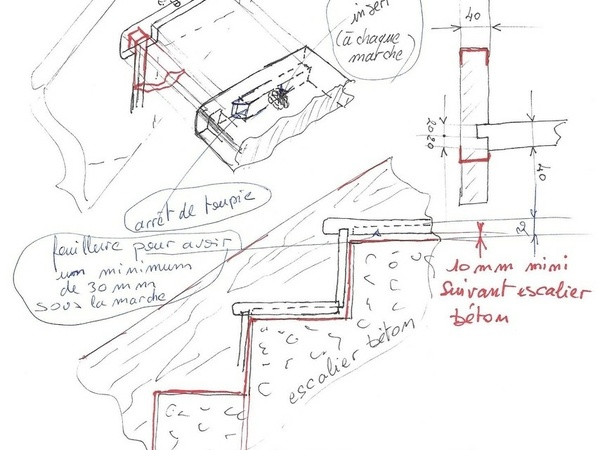 insert
(à chaque
marche)
40
2020
40
arrêt de toupie
feuillure pour avoir
un minimum
de 30 mm
sous la marche
2
10 mm mini
Suivant escalier
béton
escalier béton